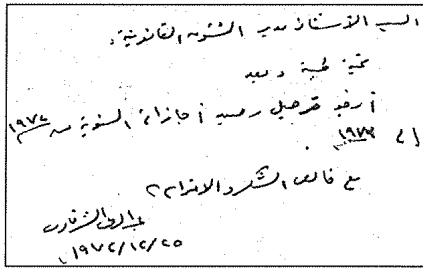 السيد الأستاذ مدير الشئون القانونية.
تحية طيبة وبعد
أرجو ترحيل رصيد أجازاتى السنوية من ١٩٧٢
إلى ١٩٧٣.
مع فائق الشكر والاحترام
١٩٧٢/١٢/٢٥